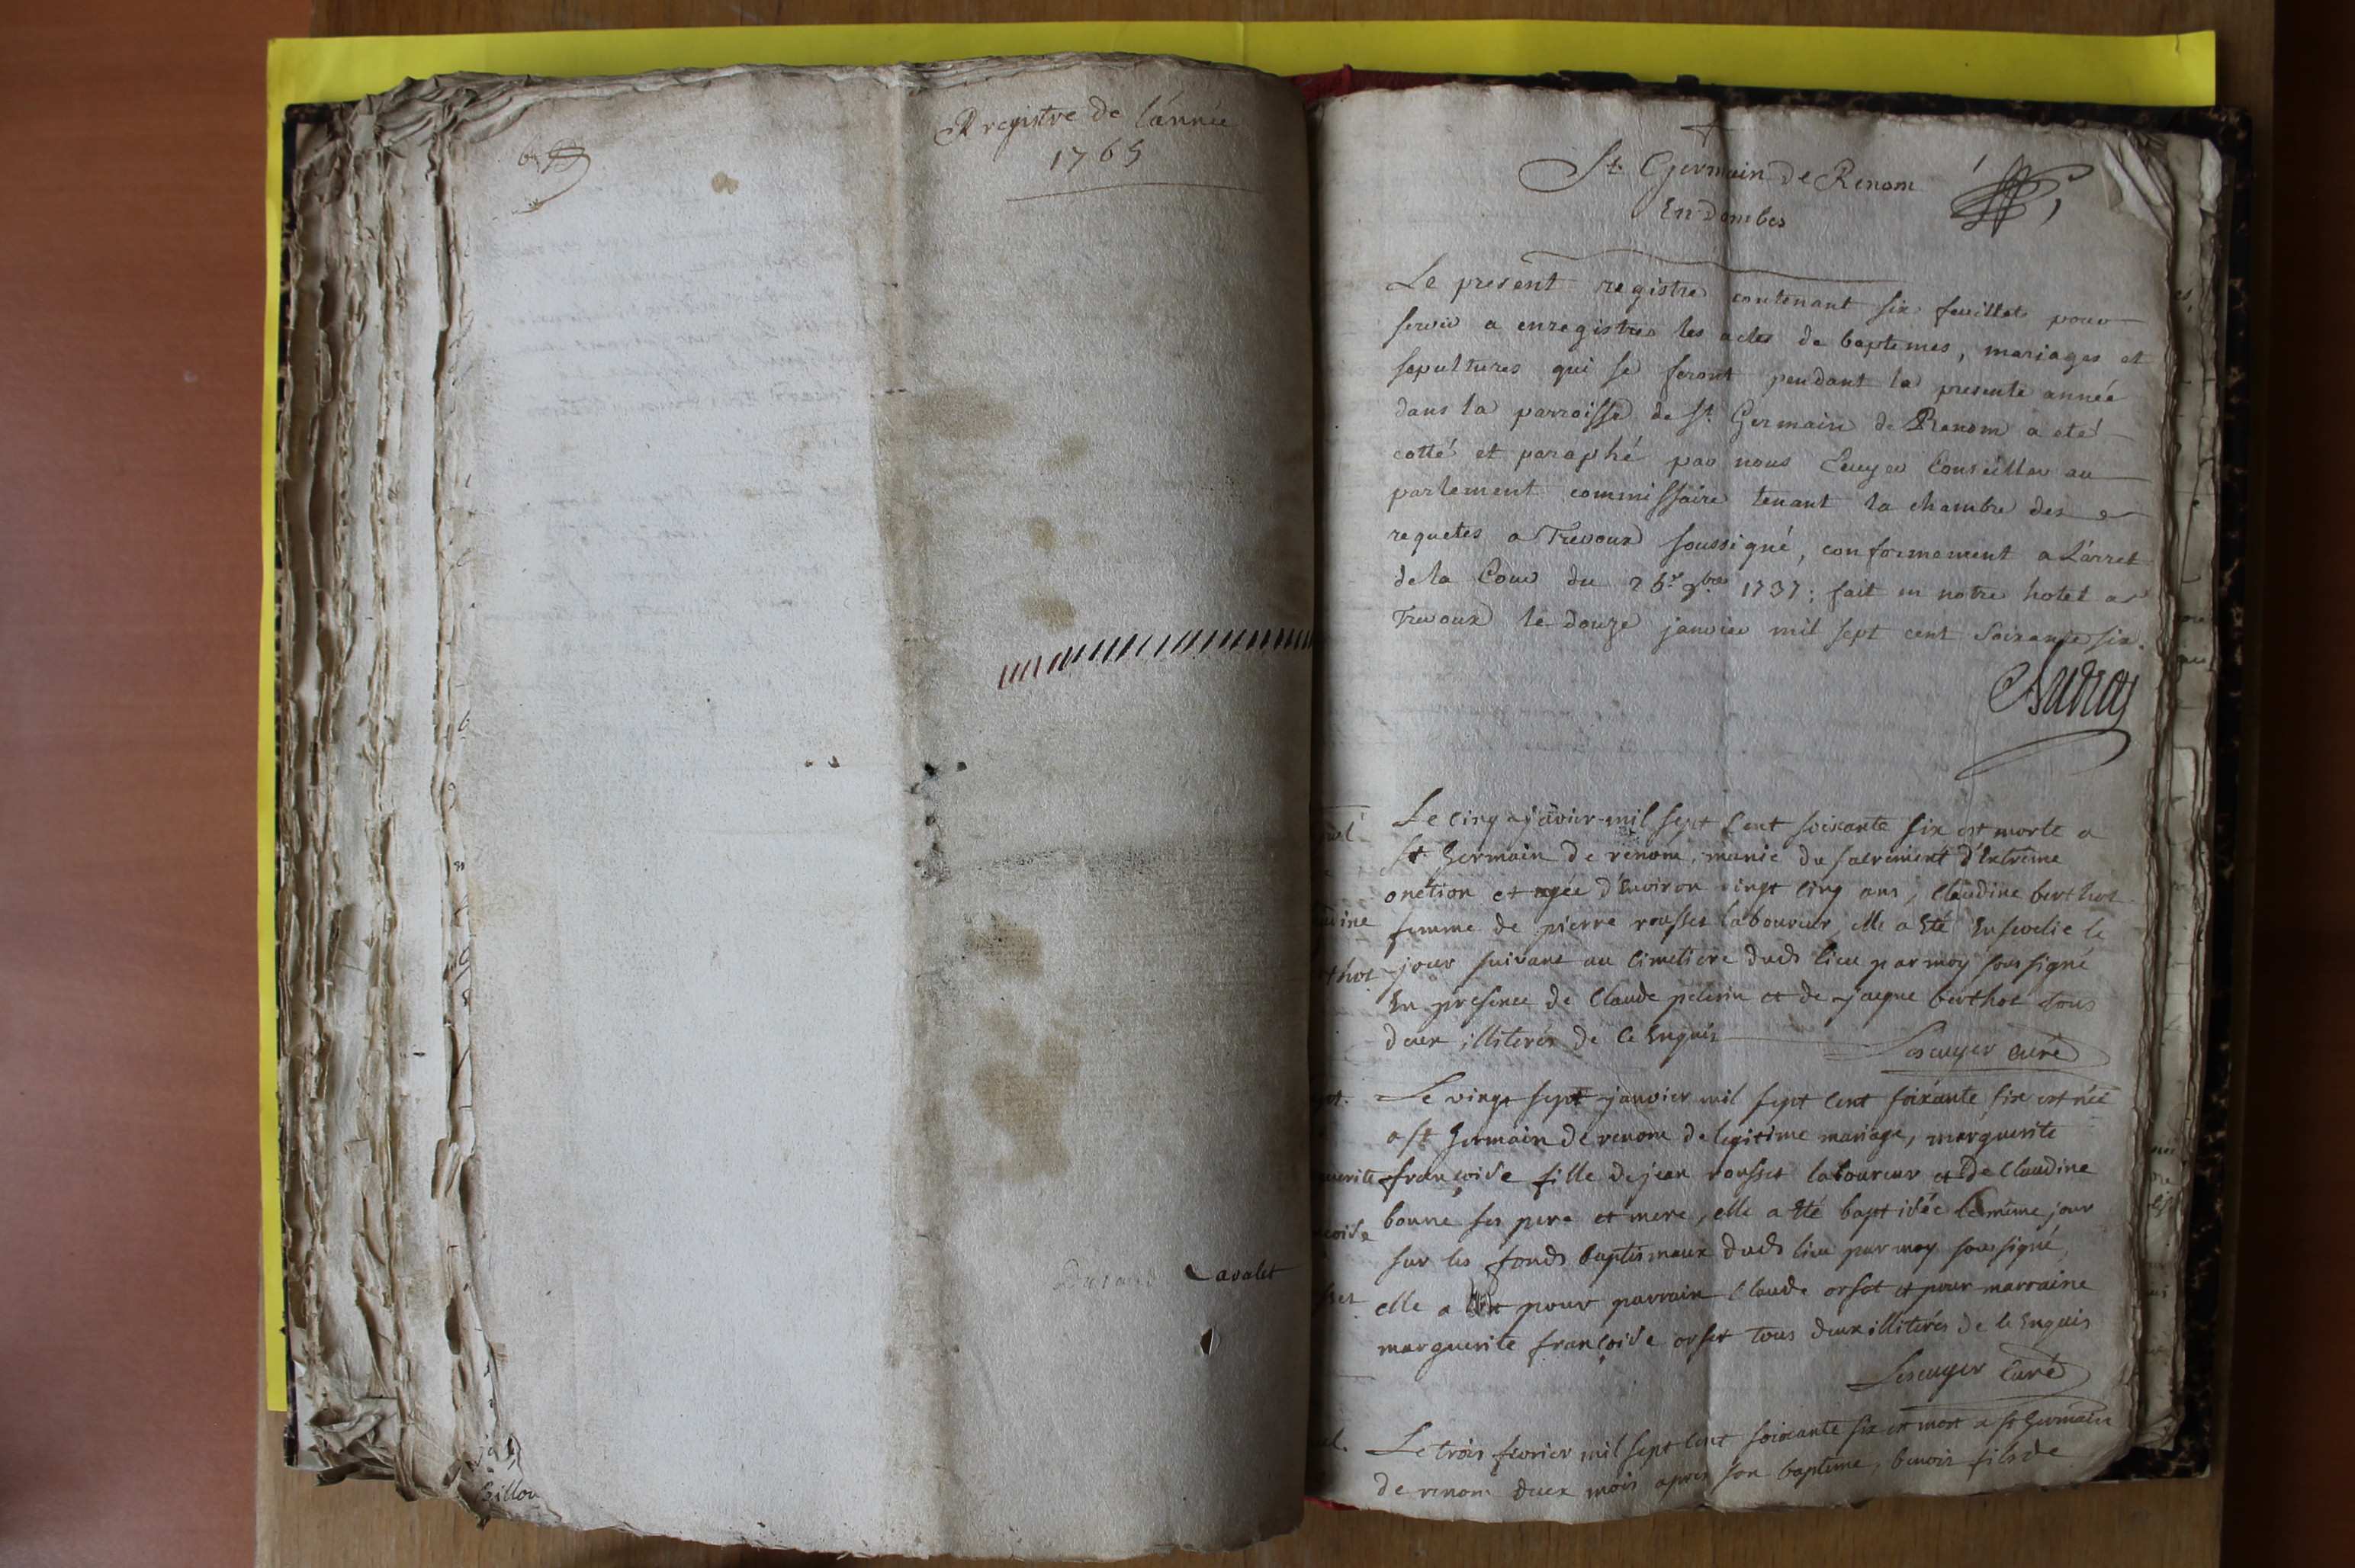 Registre de l'année
1765
Lavalet
St. Germain de Renom
En dombes
Le present registre contenant six feuillets pour
servir a enregistrer les actes de baptemes, mariages et
sepultures qui se feront pendant la presente année
dans la parroisse de St. Germain de Renom a eté
cotté et paraphé par nous Ecuyer Conseiller au
parlement commissaire tenant la chambre des
requetes a Trevoux soussigné, conformement a L'arret
de la Cour du 1737; fait en notre hotel a
Trevoux le douze janvier mil sept cent soixante six.
Le cinq janvier mil sept cent soixante six est morte a
St Germain de renom, munie du sacrement d'Extrême
onction et agée d'Environ vingt cinq ans, Claudine berthot
udine
femme de pierre rousset laboureur, elle a Eté Ensevelie le
thot
jour suivant au Cimetiere dud lieu par moy soussigné
En presence de Claude pelerin et de jacque berthot tous
deux illiterés de ce Enquis
Lescuyer curé
Le vingt sept janvier mil sept cent soixante six est née
a St Germain de renom de legitime mariage, marguerite
uerite
françoise fille de jean rousset laboureur et de Claudine
bonne ses pere et mere, elle a Eté baptisée le même jour
çoise
sur les fonds baptismaux dud lieu par moy soussigné,
elle a pour parrain Claude orset et pour marraine
sset
marguerite françoise orset tous deux illiterés de ce Enquis
Lescuyer Curé
Le trois fevrier mil sept cent soixante six est mort a St Germain
de renom deux mois apres son baptême, benoit fils de